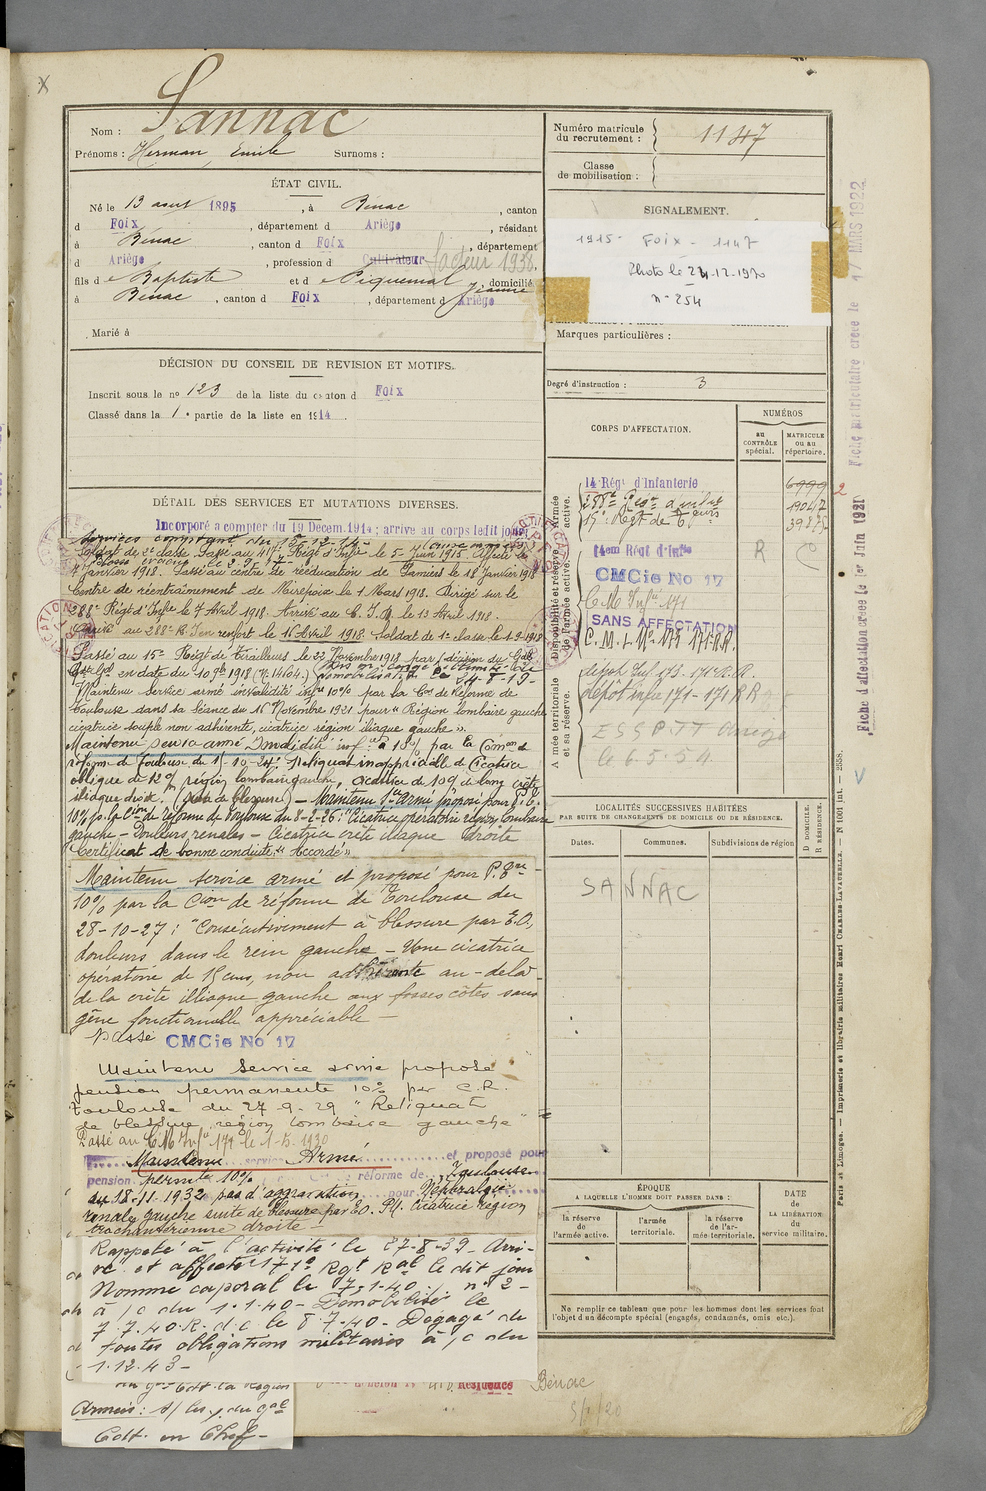 Sannac
Nom :
Prénoms : Herman, Emile Surnoms :
Numéro matricule
du recrutement : 1147
Classe
de mobilisation :
ÉTAT CIVIL.
Né le 13 aout 1895, à Bénac, canton
d Foix, département d Ariège, résidant
à Bénac, canton d Foix, département
d Ariège, profession d Cultivateur facteur 1938.
fils de Baptiste et de Piquemal Jeanne domicilié
à Bénac, canton d Foix, département d Ariège
Marié à
SIGNALEMENT.
1915 - Foix - 1147
Photo le 24-12-1970
n° 254
Marques particulières :
Degré d'instruction : 3
DÉCISION DU CONSEIL DE REVISION ET MOTIFS.
Inscrit sous le no 123 de la liste du canton d Foix
Classé dans la 1e partie de la liste en 1914
DÉTAIL DES SERVICES ET MUTATIONS DIVERSES.
Incorporé a compter du 19 Décem. 1914 ; arrivé au corps ledit jour
Services comptant du 15-12-14-
Soldat de 2e classe. Passé au 417e Régt d'Infie le 5 Juin 1915.
Janvier 1918. Passé au centre de rééducation de Pamiers le 18 Janvier 1918
Centre de réentrainement de Mirepoix le 1 Mars 1918. Dirigé sur le
288e Régt d'Infie le 7 Avril 1918. Arrivé au C. I. D. le 13 Avril 1918.
Arrivé au 288e R.I en renfort le 16 Avril 1918. Soldat de 1e classe le 1-9-1918
Passé au 15e Régt de Tirailleurs le 23 Novembre 1918 par décision du Gal
en date du 10 9bre 1918
Maintenu Service armé invalidité infre 10% par la Con de Réforme de
Toulouse dans sa séance du 16 Novembre 1921 pour "Région lombaire gauche
cicatrice souple non adhérente, cicatrice région iliaque gauche".
Maintenu service armé Invalidité infre à 10% par la Comon de
réforme de Toulouse du 1-10-24: Reliquat inappréciable de Cicatrice
oblique de 12 cm région lombaire gauche, cicatrice de 10 cm de long crête
iliaque droite. (suite de blessure) - Maintenu Sce armé proposé pour P.T.
10% par la Cion de réforme de Toulouse du 8-2-26: "Cicatrice opératoire région lombaire
gauche - Douleurs rénales - Cicatrice crête iliaque droite
Certificat de bonne conduite: "Accordé"
Maintenu service armé et proposé pour P.
10% par la Cion de réforme de Toulouse du
28-10-27 : "Consécutivement à blessure par E.O,
douleurs dans le rein gauche - Une cicatrice
opératoire de 15 cms, non adhérente au-delà
de la crête illiaque gauche aux fosses côtes sans
gêne fonctionnelle appréciable -
Passé CMCie No 17
Maintenu Service armé proposé
pension permanente 10% par C.R.
Toulouse du 27-9-29 "Reliquat
de blessure région lombaire gauche"
Passé au C M Infie 171 le 1-5-1930
Maintenu service Armé et proposé pour
pension permte 10% réforme de Toulouse
du 18-11-1932 pas d'aggravation pour Néphralgie
rénale gauche suite de blessure par E.O. Pl. cicatrice région
trochantérienne droite -
Rappelé à l'activité le 27-8-39 - Arri-
vé et affecté 171e Rgt Ral le dit jour
Nomme caporal le 7-1-40 - n° 2 -
à /c du 1-1-40 - Démobilisé le
7.7.40. R.d.c le 8.7.40 - Dégagé de
toutes obligations militaires à /c du
1.12.43 -
du Gal Cdt la Région
Armées: s/
Cdt. en Chef -
Résidence Bénac
CORPS D'AFFECTATION.
NUMÉROS
au
CONTRÔLE
spécial.
MATRICULE
ou au
répertoire.
Armée
active.
14 Régt d'Infanterie 6999
288e Regt d'Infie 19047
15e Régt de Teurs 39275
Disponibilité et réserve
de l'armée active.
14em Régt d'Infie R
CMCie No 17
C M Infie 171
SANS AFFECTATION
C. M. I. No 173 171 R.R.
Armée territoriale
et sa réserve.
dépôt Inf 173. 171e R.R.
dépôt infie 171 - 171 RR
E S S P T T Ariège
le 6.5.54.
LOCALITÉS SUCCESSIVES HABITÉES
PAR SUITE DE CHANGEMENTS DE DOMICILE OU DE RÉSIDENCE.
Dates. Communes. Subdivisions de région
D DOMICILE.
R RÉSIDENCE.
SANNAC
ÉPOQUE
A LAQUELLE L'HOMME DOIT PASSER DANS :
la réserve
de
l'armée active.
l'armée
territoriale.
la réserve
de l'ar-
mée territoriale.
DATE
de
LA LIBÉRATION
du
service militaire.
Ne remplir ce tableau que pour les hommes dont les services font
l'objet d'un décompte spécial (engagés, condamnés, omis etc.).
Fiche matriculaire créée le 17 MARS 1922
Fiche d'affectation créée le 1er Juin 1921
Paris et Limoges. — Imprimerie et librairie militaires Henri CHARLES-LAVAUZELLE. — N 1601 int. — 2558.